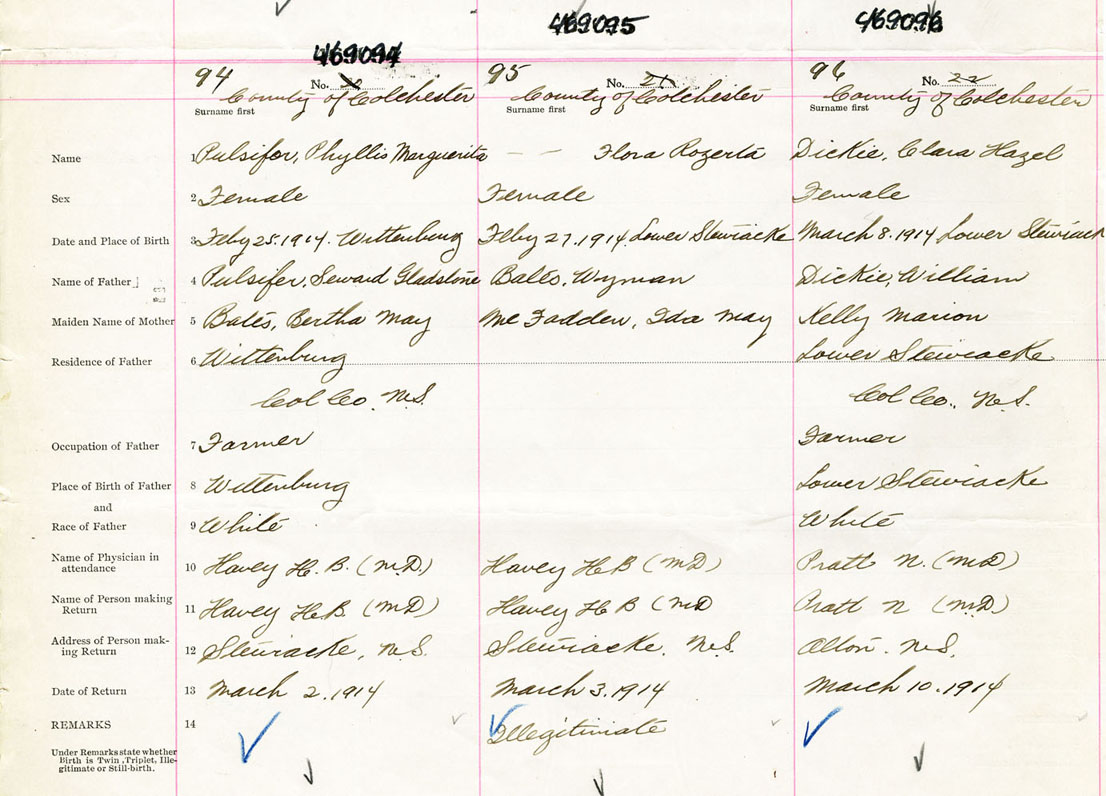 469094 469095 469096
94 No. 95 No. 21 96 No. 22
County of Colchester County of Colchester County of Colchester
Surname first Surname first Surname first
Name 1 Pulsifer, Phyllis Marguerita — — Flora Rozerta Dickie, Clara Hazel
Sex 2 Female Female Female
Date and Place of Birth 3 Feby 25.1914. Wittenburg Feby 27.1914 Lower Stewiacke March 8.1914, Lower Stewiack
Name of Father 4 Pulsifer, Seward Gladstone Bates, Wyman Dickie, William
Maiden Name of Mother 5 Bates, Bertha May McFadden, Ida May Kelly Marion
Residence of Father 6 Wittenburg Lower Stewiacke
Col Co. N.S. Col Co., N.S.
Occupation of Father 7 Farmer Farmer
Place of Birth of Father 8 Wittenburg Lower Stewiacke
and
Race of Father 9 White White
Name of Physician in
attendance 10 Havey H. B. (M.D.) Havey H B (MD) Pratt N. (MD)
Name of Person making
Return 11 Havey H B (MD) Havey H B (MD Pratt N (M.D)
Address of Person mak-
ing Return 12 Stewiacke, N.S. Stewiacke, N.S. Alton. N.S.
Date of Return 13 March 2.1914 March 3.1914 March 10.1914
REMARKS 14 Illegitimate
Under Remarks state whether
Birth is Twin, Triplet, Ille-
gitimate or Still-birth.